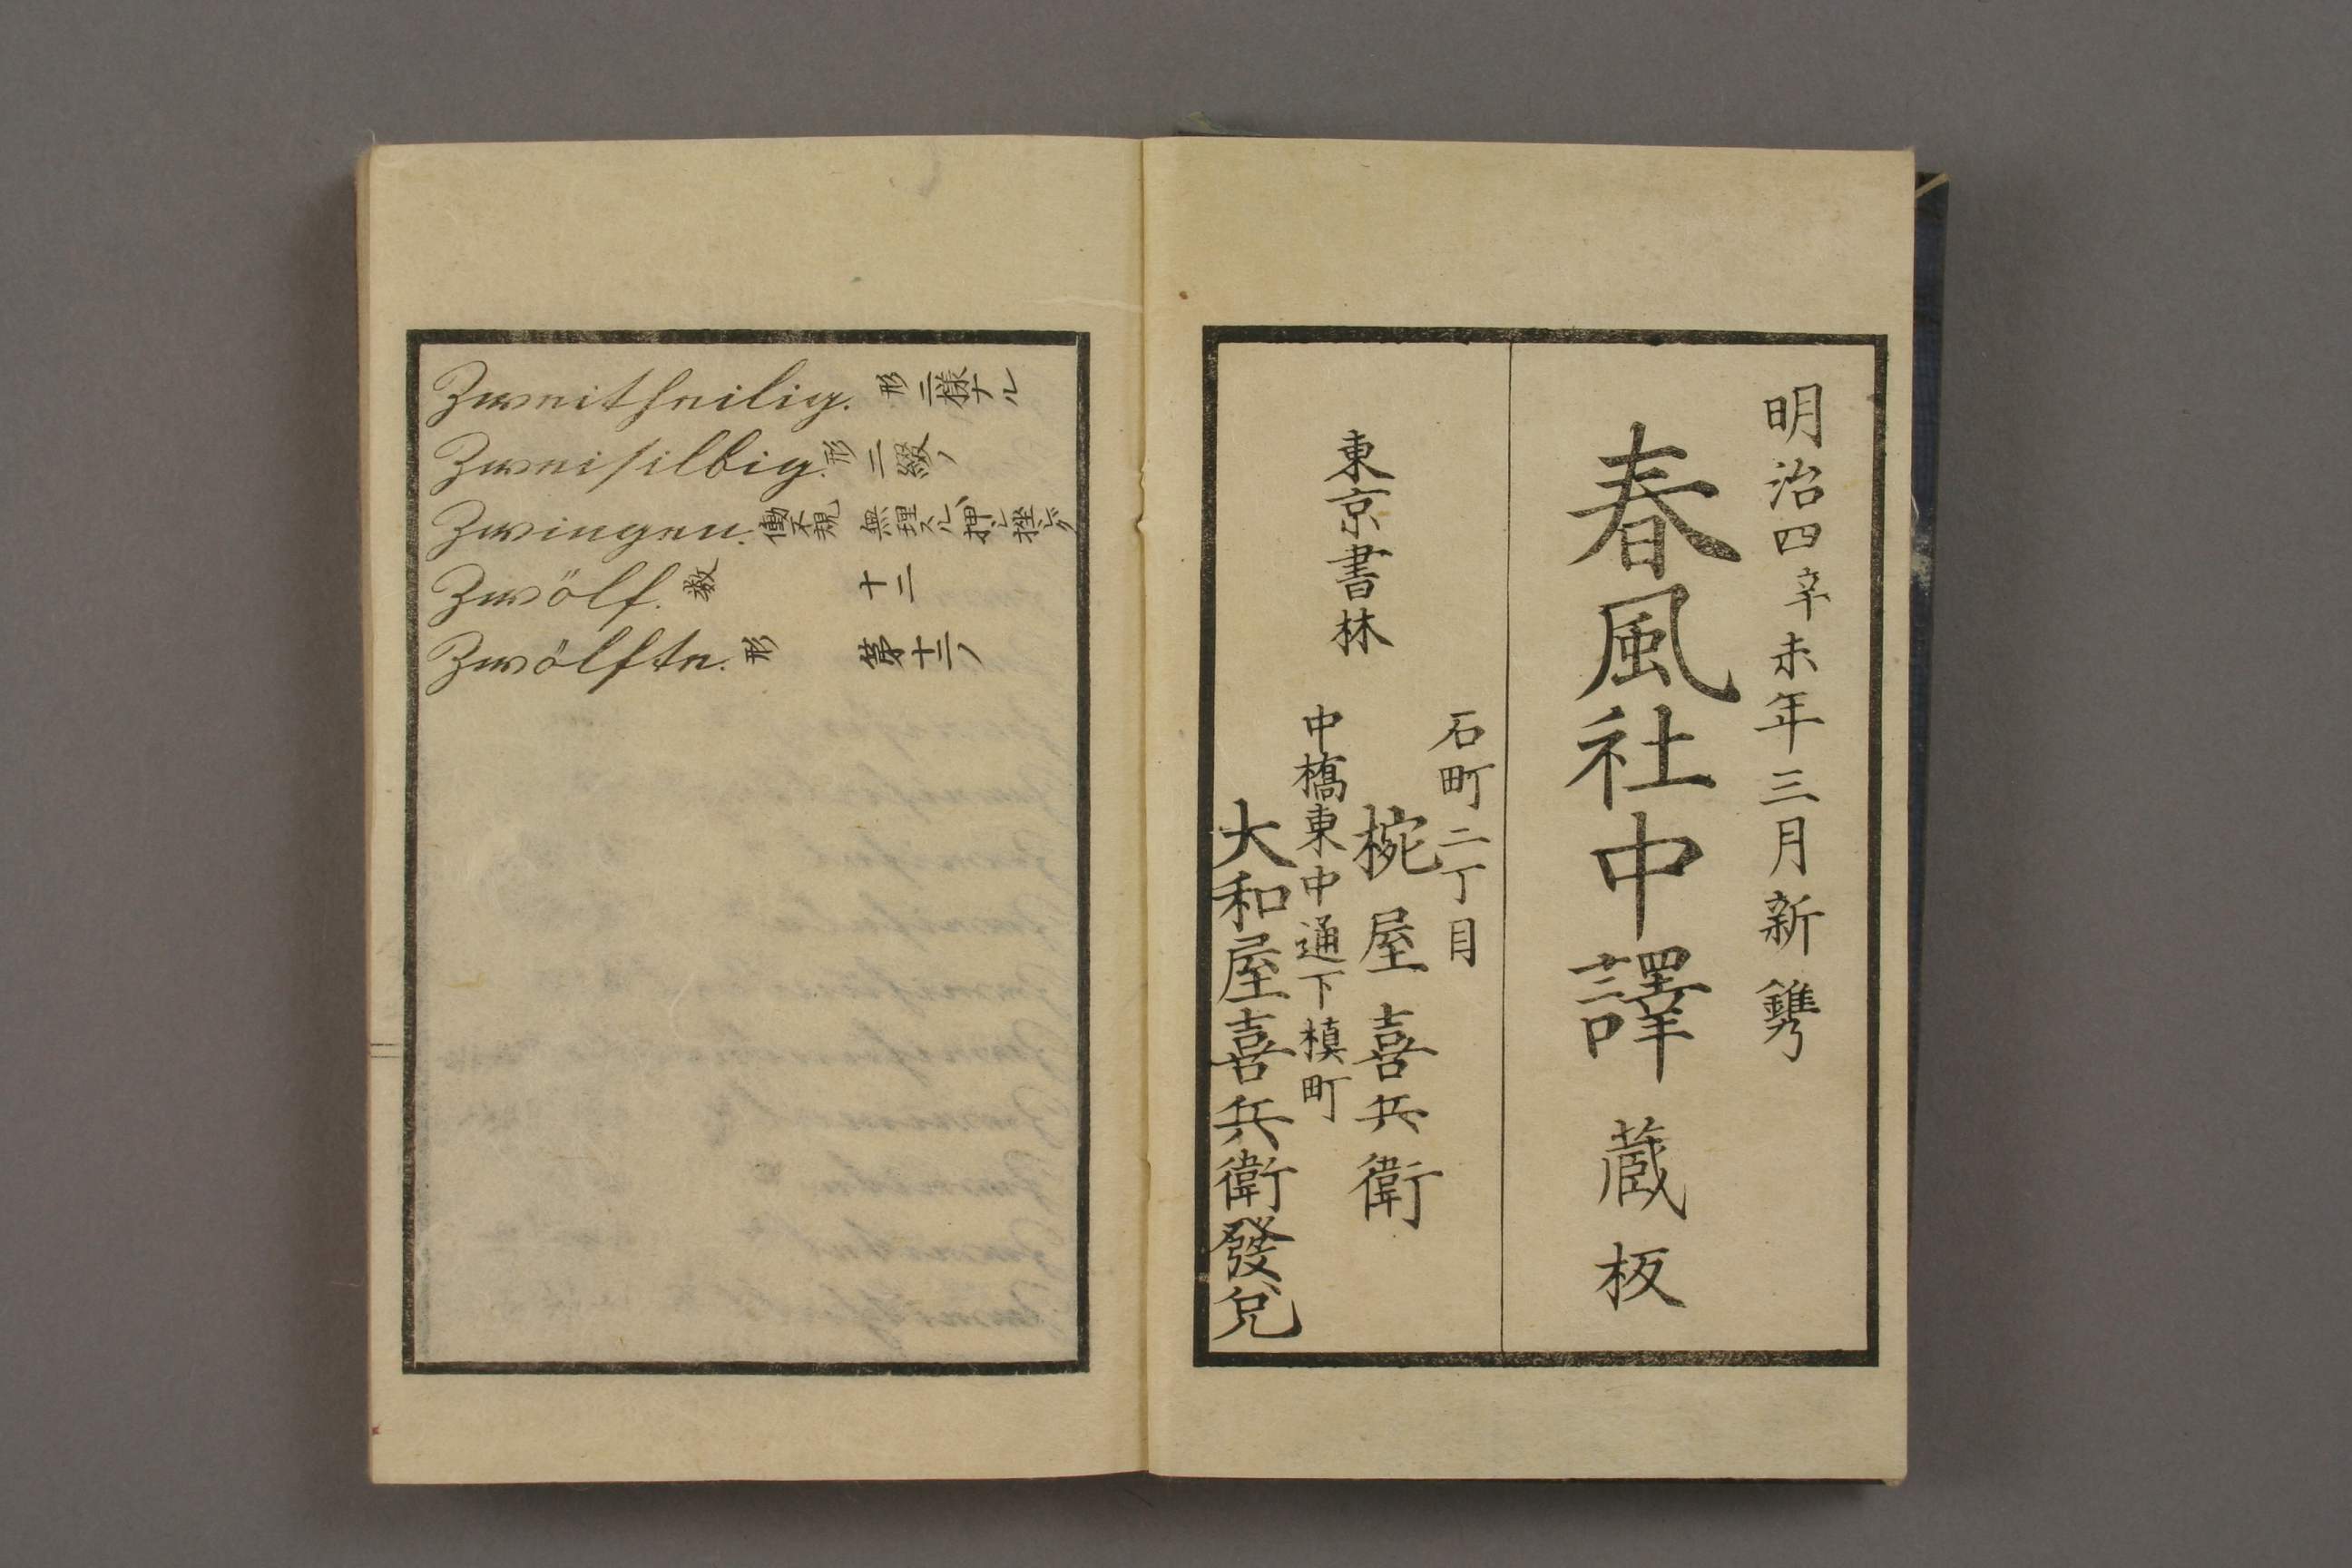 明治四辛未年三月新鐫
春風社中譯蔵板
東京書林
石町二丁目
椀屋喜兵衛
中橋東中通下槙町
大和屋喜兵衛發兌
Zweitheilig. 形 二様ナル
Zweisilbig. 形 二綴ノ
Zwingen. 働不規 無理スル、押シ挫ク
Zwölf. 数 十二
Zwölfte. 形 第十二ノ